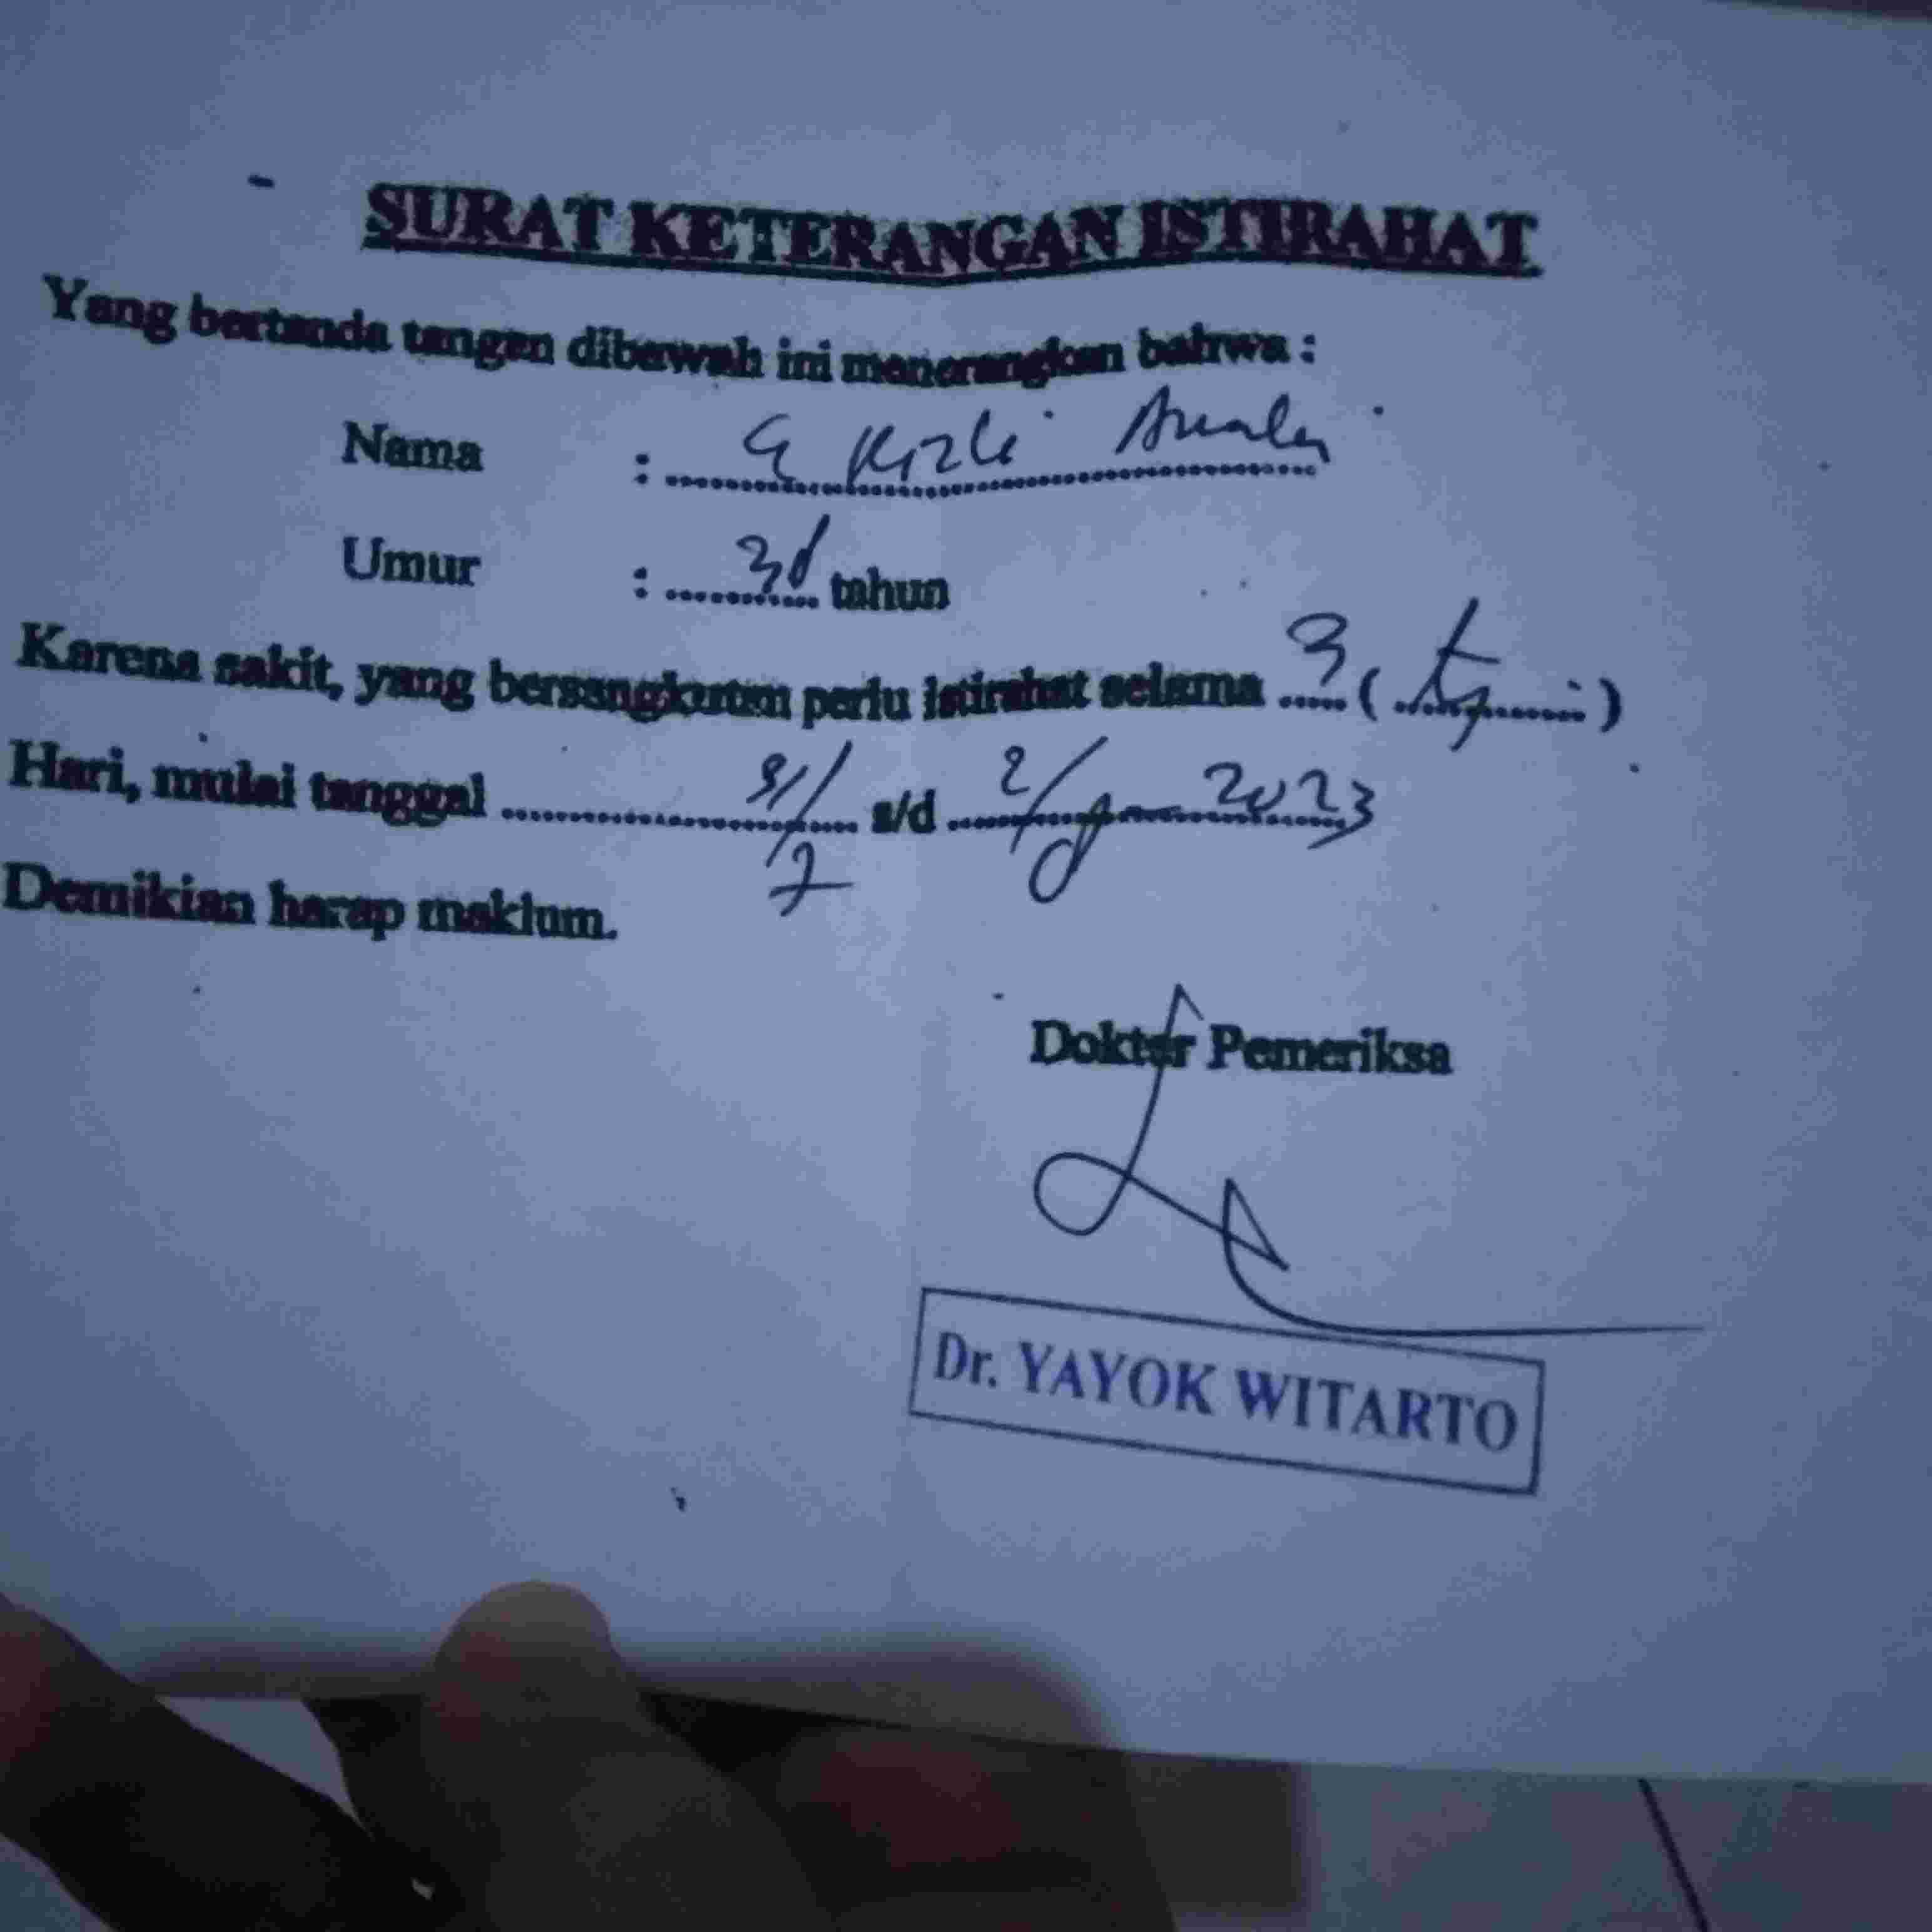 SURAT KETERANGAN ISTIRAHAT
Yang bertanda tangan dibawah ini menerangkan bahwa :
Nama : Rizki
Umur : tahun
Karena sakit, yang bersangkutan perlu istirahat selama 3 ( )
Hari, mulai tanggal 31/7 s/d 2/ 2023
Demikian harap maklum.
Dokter Pemeriksa
Dr. YAYOK WITARTO